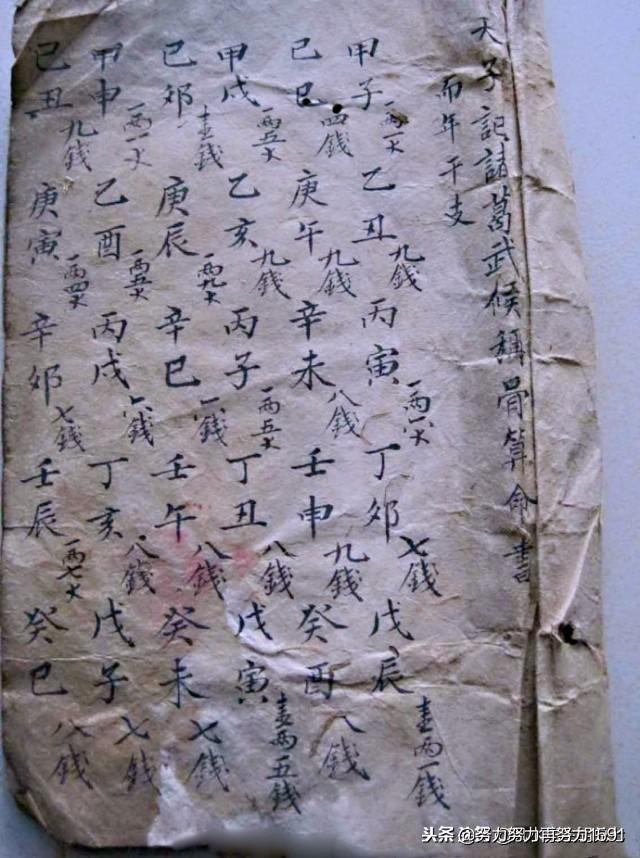 天子記諸葛武候稱骨算命書
而年干支
甲子 一两一大 乙丑 九錢 丙寅 一两八大 丁卯 七錢 戊辰 壹两一錢
己巳 四錢 庚午 九錢 辛未 八錢 壬申 九錢 癸酉 八錢
甲戌 一两五大 乙亥 九錢 丙子 一两五大 丁丑 八錢 戊寅 壹两五錢
己卯 壹錢 庚辰 一两九大 辛巳 六錢 壬午 八錢 癸未 七錢
甲申 一两一大 乙酉 一两五大 丙戌 六錢 丁亥 八錢 戊子 七錢
己丑 九錢 庚寅 一两四大 辛卯 七錢 壬辰 一两七大 癸巳 八錢
头条 @努力努力再努力